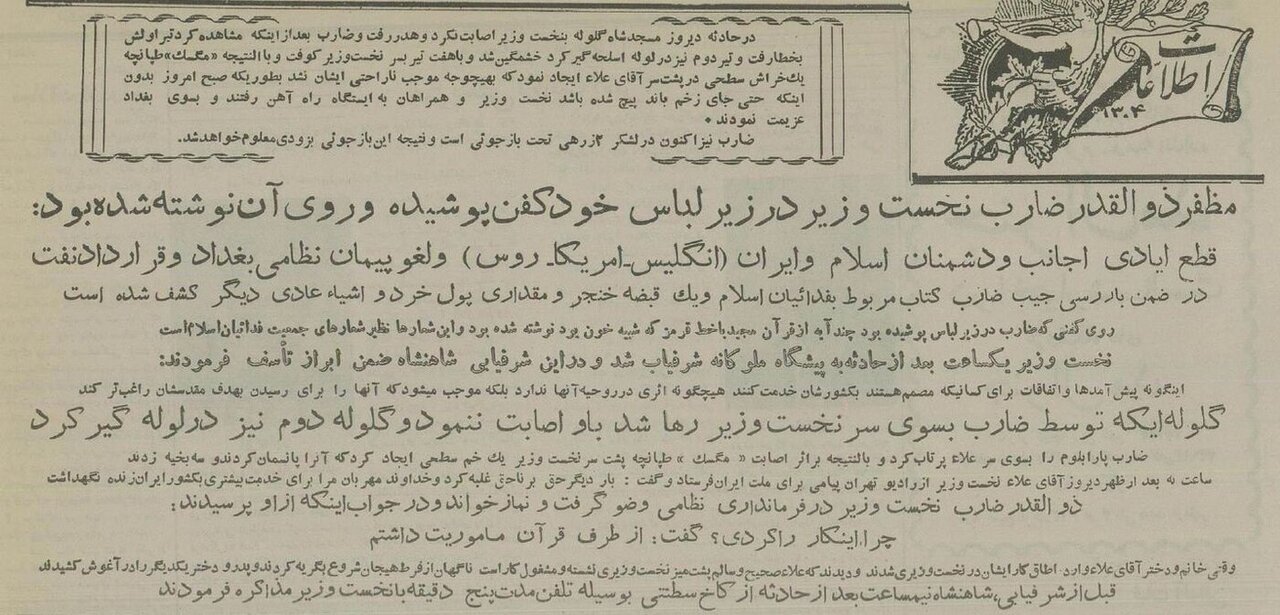 اطلاعات
۱۳۰۴
در حادثه دیروز مسجد شاه گلوله بنخست وزیر اصابت نکرد و هدر رفت و ضارب بعد از اینکه مشاهده کرد تیر اولش
بخطا رفت و تیر دوم نیز در لوله اسلحه گیر کرد خشمگین شد و با هفت تیر بسر نخست وزیر کوفت و بالنتیجه «مگسك» طپانچه
يك خراش سطحی در پشت سر آقای علاء ایجاد نمود که بهیچوجه موجب ناراحتی ایشان نشد بطوریکه صبح امروز بدون
اینکه حتی جای زخم باند پیچ شده باشد نخست وزیر و همراهان به ایستگاه راه آهن رفتند و بسوی بغداد
عزیمت نمودند.
ضارب نیز اکنون در لشکر ۲ زرهی تحت بازجوئی است و نتیجه این بازجوئی بزودی معلوم خواهد شد.
مظفر ذوالقدر ضارب نخست وزیر در زیر لباس خود کفن پوشیده و روی آن نوشته شده بود:
قطع ایادی اجانب و دشمنان اسلام و ایران (انگلیس ـ امریکا ـ روس) ولغو پیمان نظامی بغداد و قرارداد نفت
در ضمن بازرسی جیب ضارب کتاب مربوط بفدائیان اسلام ويك قبضه خنجر و مقداری پول خرد و اشیاء عادی دیگر کشف شده است
روی کفنی که ضارب در زیر لباس پوشیده بود چند آیه از قرآن مجید با خط قرمز که شبیه خون بود نوشته شده بود و این شعارها نظیر شعارهای جمعیت فدائیان اسلام است
نخست وزیر یکساعت بعد از حادثه به پیشگاه ملوکانه شرفیاب شد و در این شرفیابی شاهنشاه ضمن ابراز تأسف فرمودند:
اینگونه پیش آمدها و اتفاقات برای کسانیکه مصمم هستند بکشورشان خدمت کنند هیچگونه اثری در روحیه آنها ندارد بلکه موجب میشود که آنها را برای رسیدن بهدف مقدسشان راغب تر کند
گلوله ایکه توسط ضارب بسوی سر نخست وزیر رها شد باو اصابت ننمود و گلوله دوم نیز در لوله گیر کرد
ضارب پارابلوم را بسوی سر علاء پرتاب کرد و بالنتیجه براثر اصابت «مگسك» طپانچه پشت سر نخست وزیر يك خم سطحی ایجاد کرد که آنرا پانسمان کردند و سه بخیه زدند
ساعت نه بعد از ظهر دیروز آقای علاء نخست وزیر از رادیو تهران پیامی برای ملت ایران فرستاد و گفت : بار دیگر حق بر ناحق غلبه کرد و خداوند مهربان مرا برای خدمت بیشتری بکشور ایران زنده نگهداشت
ذوالقدر ضارب نخست وزیر در فرمانداری نظامی وضو گرفت و نماز خواند و در جواب اینکه از او پرسیدند:
چرا اینکار را کردی؟ گفت: از طرف قرآن ماموریت داشتم
وقتی خانم و دختر آقای علاء وارد اطاق کار ایشان در نخست وزیری شدند و دیدند که علاء صحیح و سالم پشت میز نخست وزیری نشسته و مشغول کار است ناگهان از فرط هیجان شروع بگریه کردند و پدر و دختر یکدیگر را در آغوش کشیدند
قبل از شرفیابی، شاهنشاه نیمساعت بعد از حادثه از کاخ سلطنتی بوسیله تلفن مدت پنج دقیقه با نخست وزیر مذاکره فرمودند